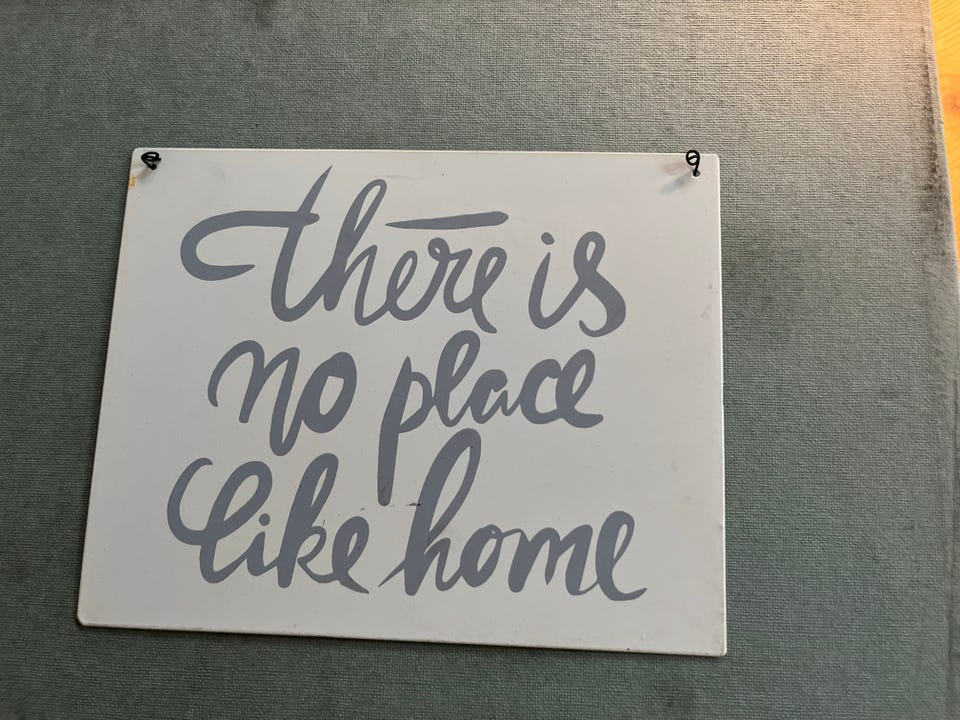 there is
no place
like home